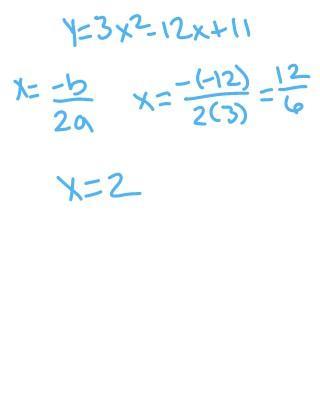 y=3x²-12x+11
x=-b/2a x=-(-12)/2(3)=12/6
x=2